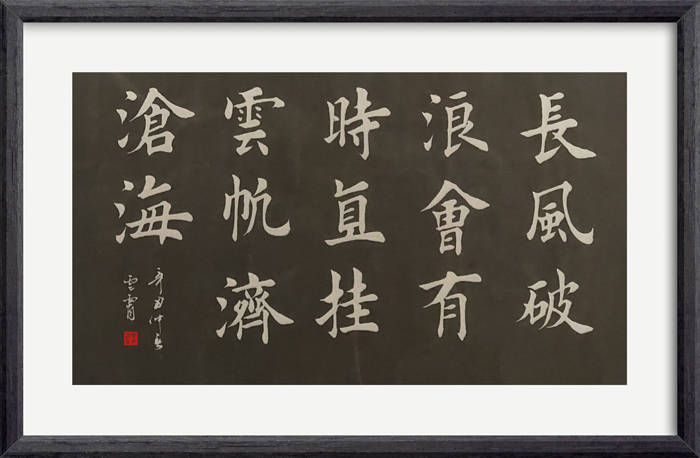 長風破
浪會有
時直挂
雲帆濟
滄海
辛丑仲夏
雲霄